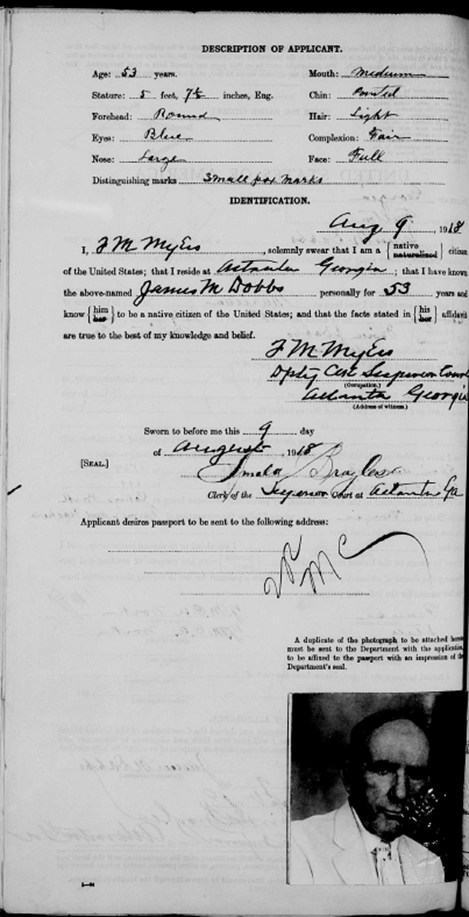 DESCRIPTION OF APPLICANT.
Age: 53 years. Mouth: Medium
Stature: 5 feet, 7½ inches, Eng. Chin: Pointed
Forehead: Round Hair: Light
Eyes: Blue Complexion: Fair
Nose: Large Face: Full
Distinguishing marks Small pox marks
IDENTIFICATION.
Aug 9, 1918
I, F M Myers, solemnly swear that I am a {native naturalized} citizen
of the United States; that I reside at Atlanta Georgia; that I have known
the above-named James M Dobbs personally for 53 years and
know {him her} to be a native citizen of the United States; and that the facts stated in {his her} affidavit
are true to the best of my knowledge and belief.
F M Myers
Dpty Clk Superior Court
(Occupation.)
Atlanta Georgia
(Address of witness.)
Sworn to before me this 9 day
of August, 1918
[SEAL.] Broyles
Clerk of the Superior Court at Atlanta Ga
Applicant desires passport to be sent to the following address:
A duplicate of the photograph to be attached hereto
must be sent to the Department with the application,
to be affixed to the passport with an impression of the
Department's seal.